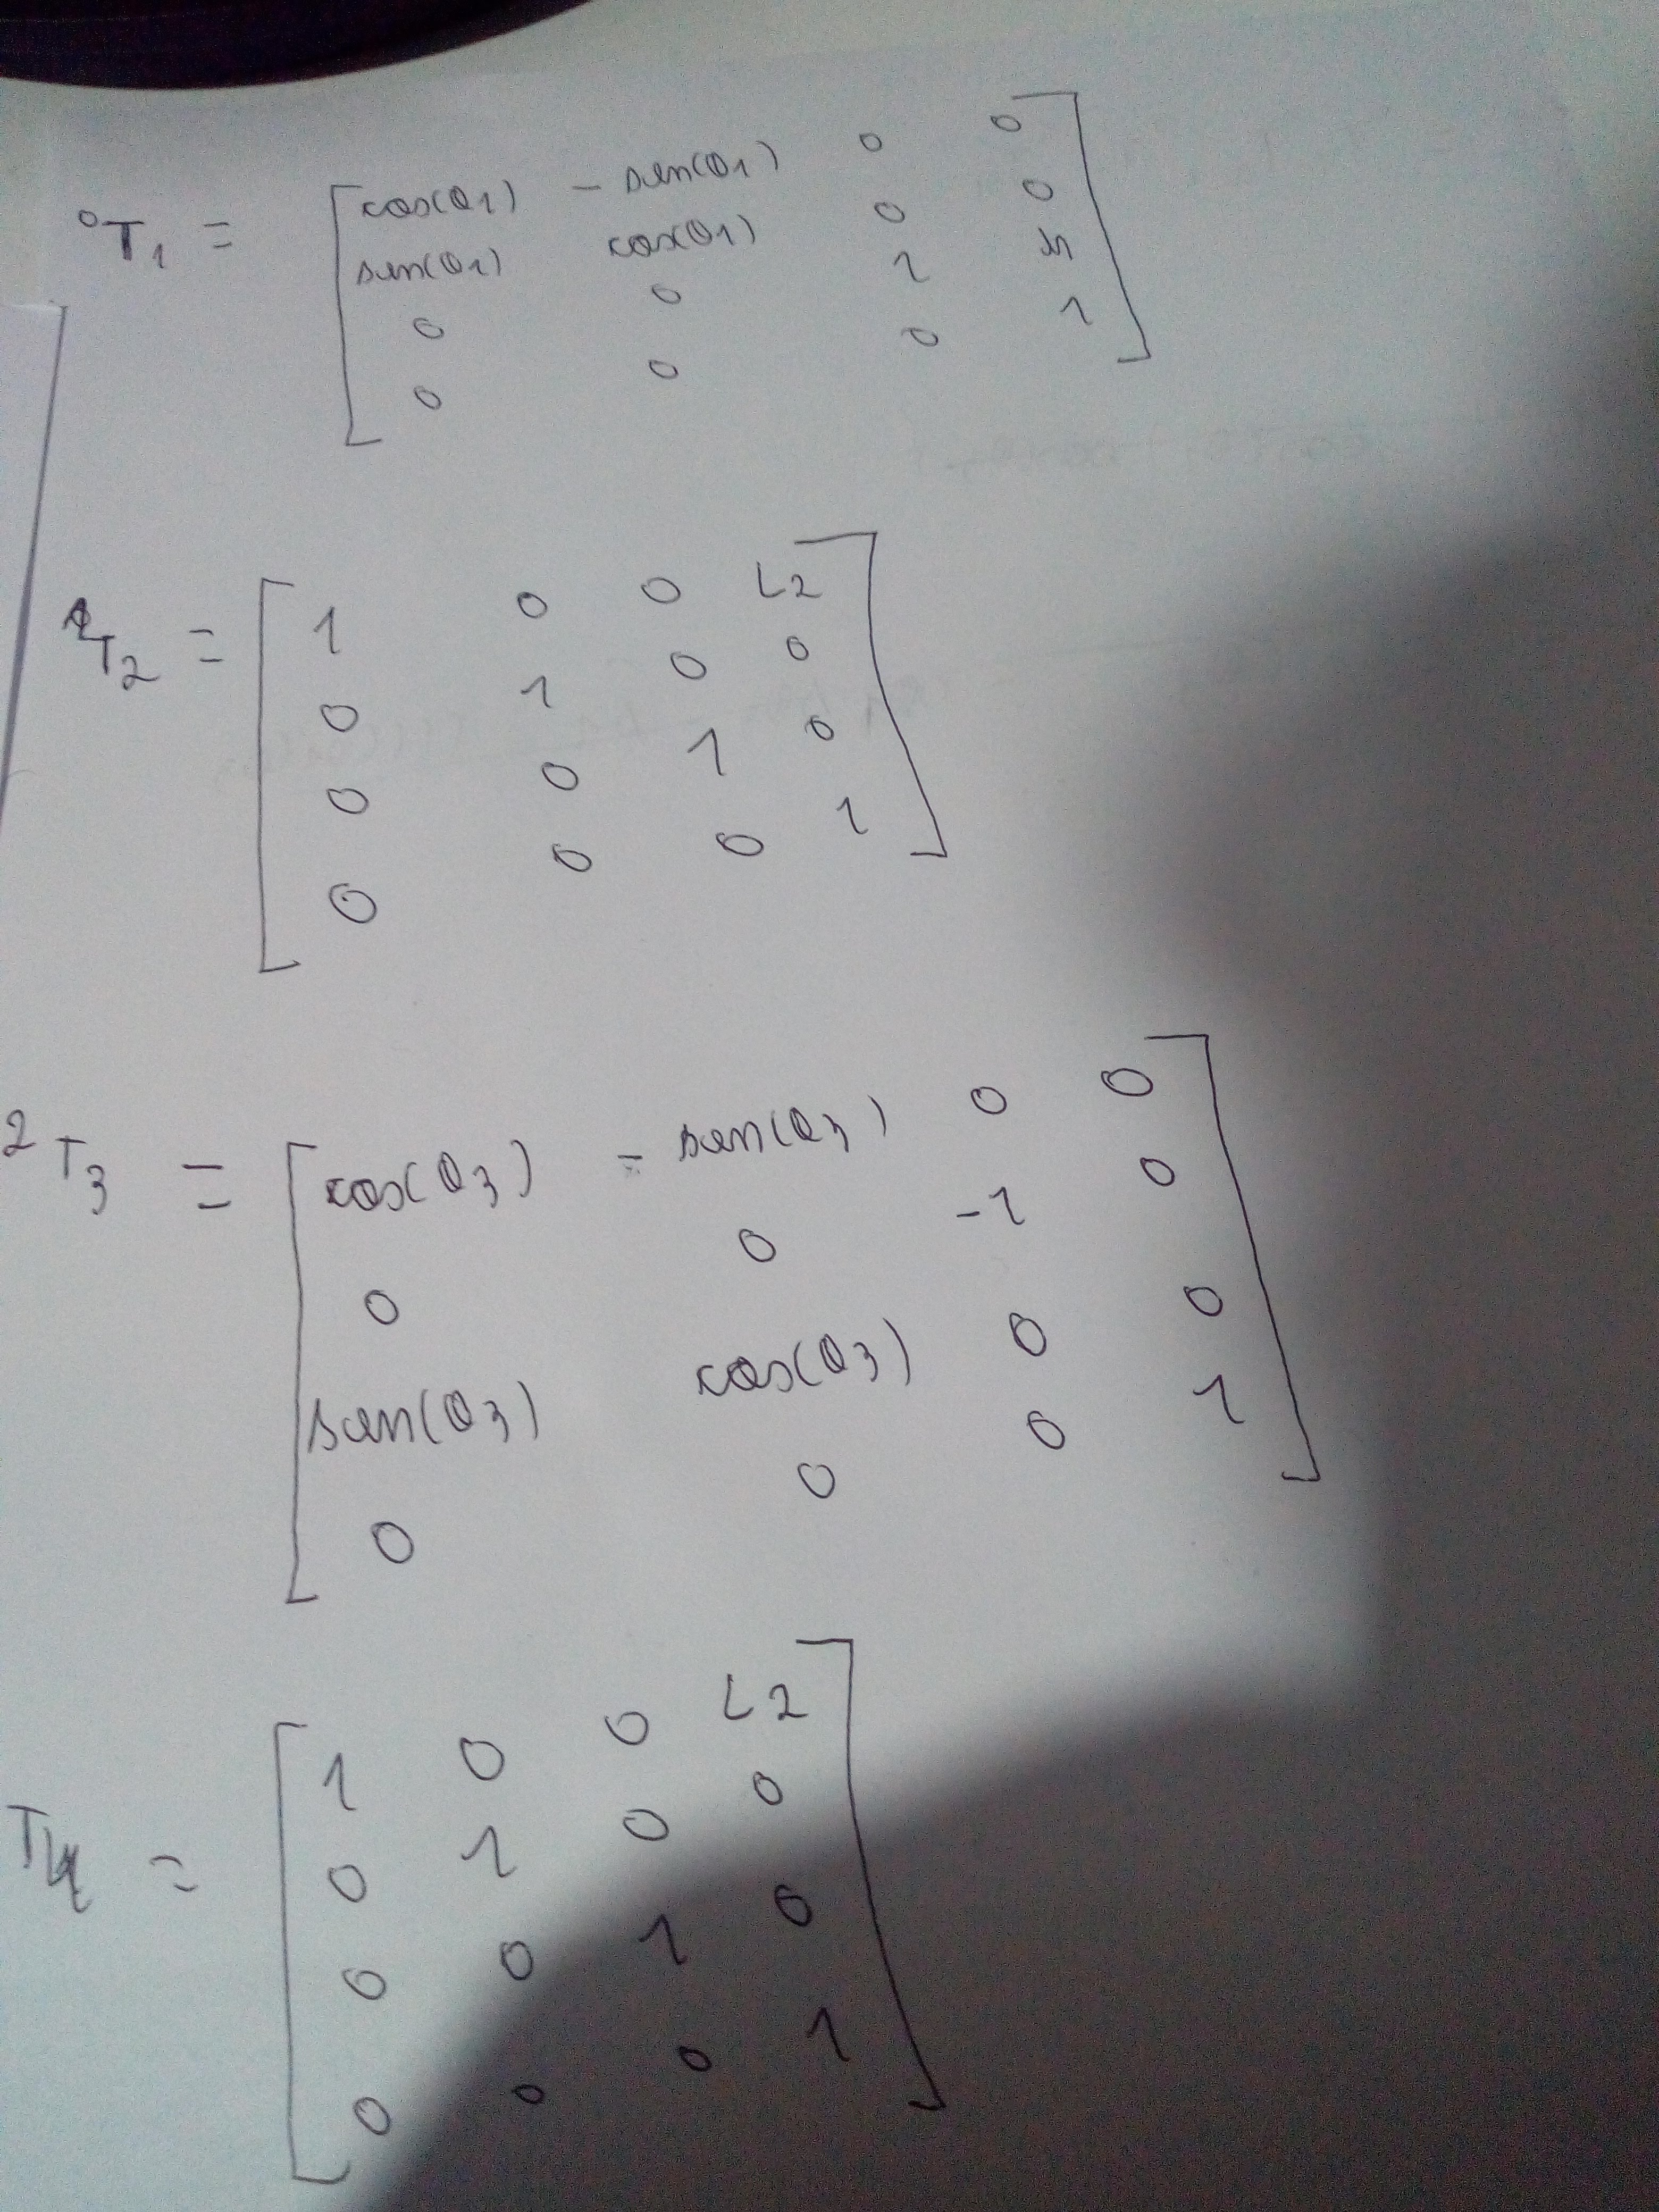 ⁰T₁ = [ cos(θ1) - sen(θ1) 0 0
sen(θ1) cos(θ1) 0 0
0 0 1
0 0 0 1 ]
T₂ = [ 1 0 0 L2
0 1 0 0
0 0 1 0
0 0 0 1 ]
²T₃ = [ cos(θ3) - sen(θ3) 0 0
0 0 -1 0
sen(θ3) cos(θ3) 0 0
0 0 0 1 ]
T4 = [ 1 0 0 L2
0 1 0 0
0 0 1 0
0 0 0 1 ]